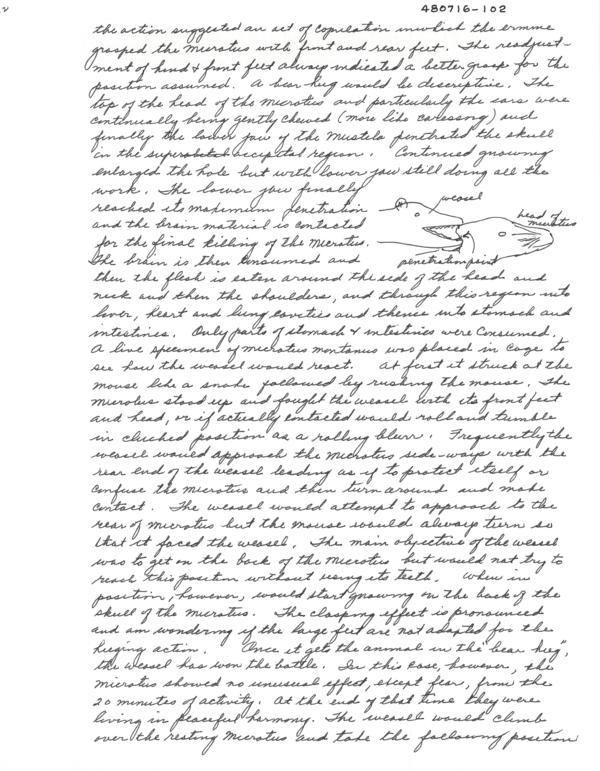 480716-102
the action suggested an act of copulation in which the ermine
grasped the microtus with front and rear feet. The readjust-
ment of hind & front feet always indicated a better grasp for the
position assumed. A bear hug would be descriptive. The
top of the head of the microtus and particularly the ears were
continually being gently chewed (more like caressing) and
finally the lower jaw of the Mustela penetrated the skull
in the occipital region. Continued gnawing
enlarged the hole but with lower jaw still doing all the
work. The lower jaw finally
reached its maximum penetration
and the brain material is contacted
for the final killing of the microtus.
weasel
head of
microtus
penetration point
The brain is then consumed and
then the flesh is eaten around the side of the head and
neck and then the shoulders, and through this region into
liver, heart and lung cavities and thence into stomach and
intestines. Only parts of stomach & intestines were consumed.
A live specimen of microtus montanus was placed in cage to
see how the weasel would react. At first it struck at the
mouse like a snake followed by rushing the mouse. The
microtus stood up and fought the weasel with its front feet
and head, or if actually contacted would roll and tumble
in clinched position as a rolling blurr. Frequently the
weasel would approach the microtus side-ways with the
rear end of the weasel leading as if to protect itself or
confuse the microtus and then turn around and make
contact. The weasel would attempt to approach to the
rear of microtus but the mouse would always turn so
that it faced the weasel. The main objective of the weasel
was to get on the back of the microtus but would not try to
reach this position without using its teeth. When in
position, however, would start gnawing on the back of the
skull of the microtus. The clasping effect is pronounced
and am wondering if the large feet are not adapted for the
huging action. Once it gets the animal in the "bear hug",
the weasel has won the battle. In this case, however, the
microtus showed no unusual effect, except fear, from the
20 minutes of activity. At the end of that time they were
living in peaceful harmony. The weasel would climb
over the resting microtus and take the following position